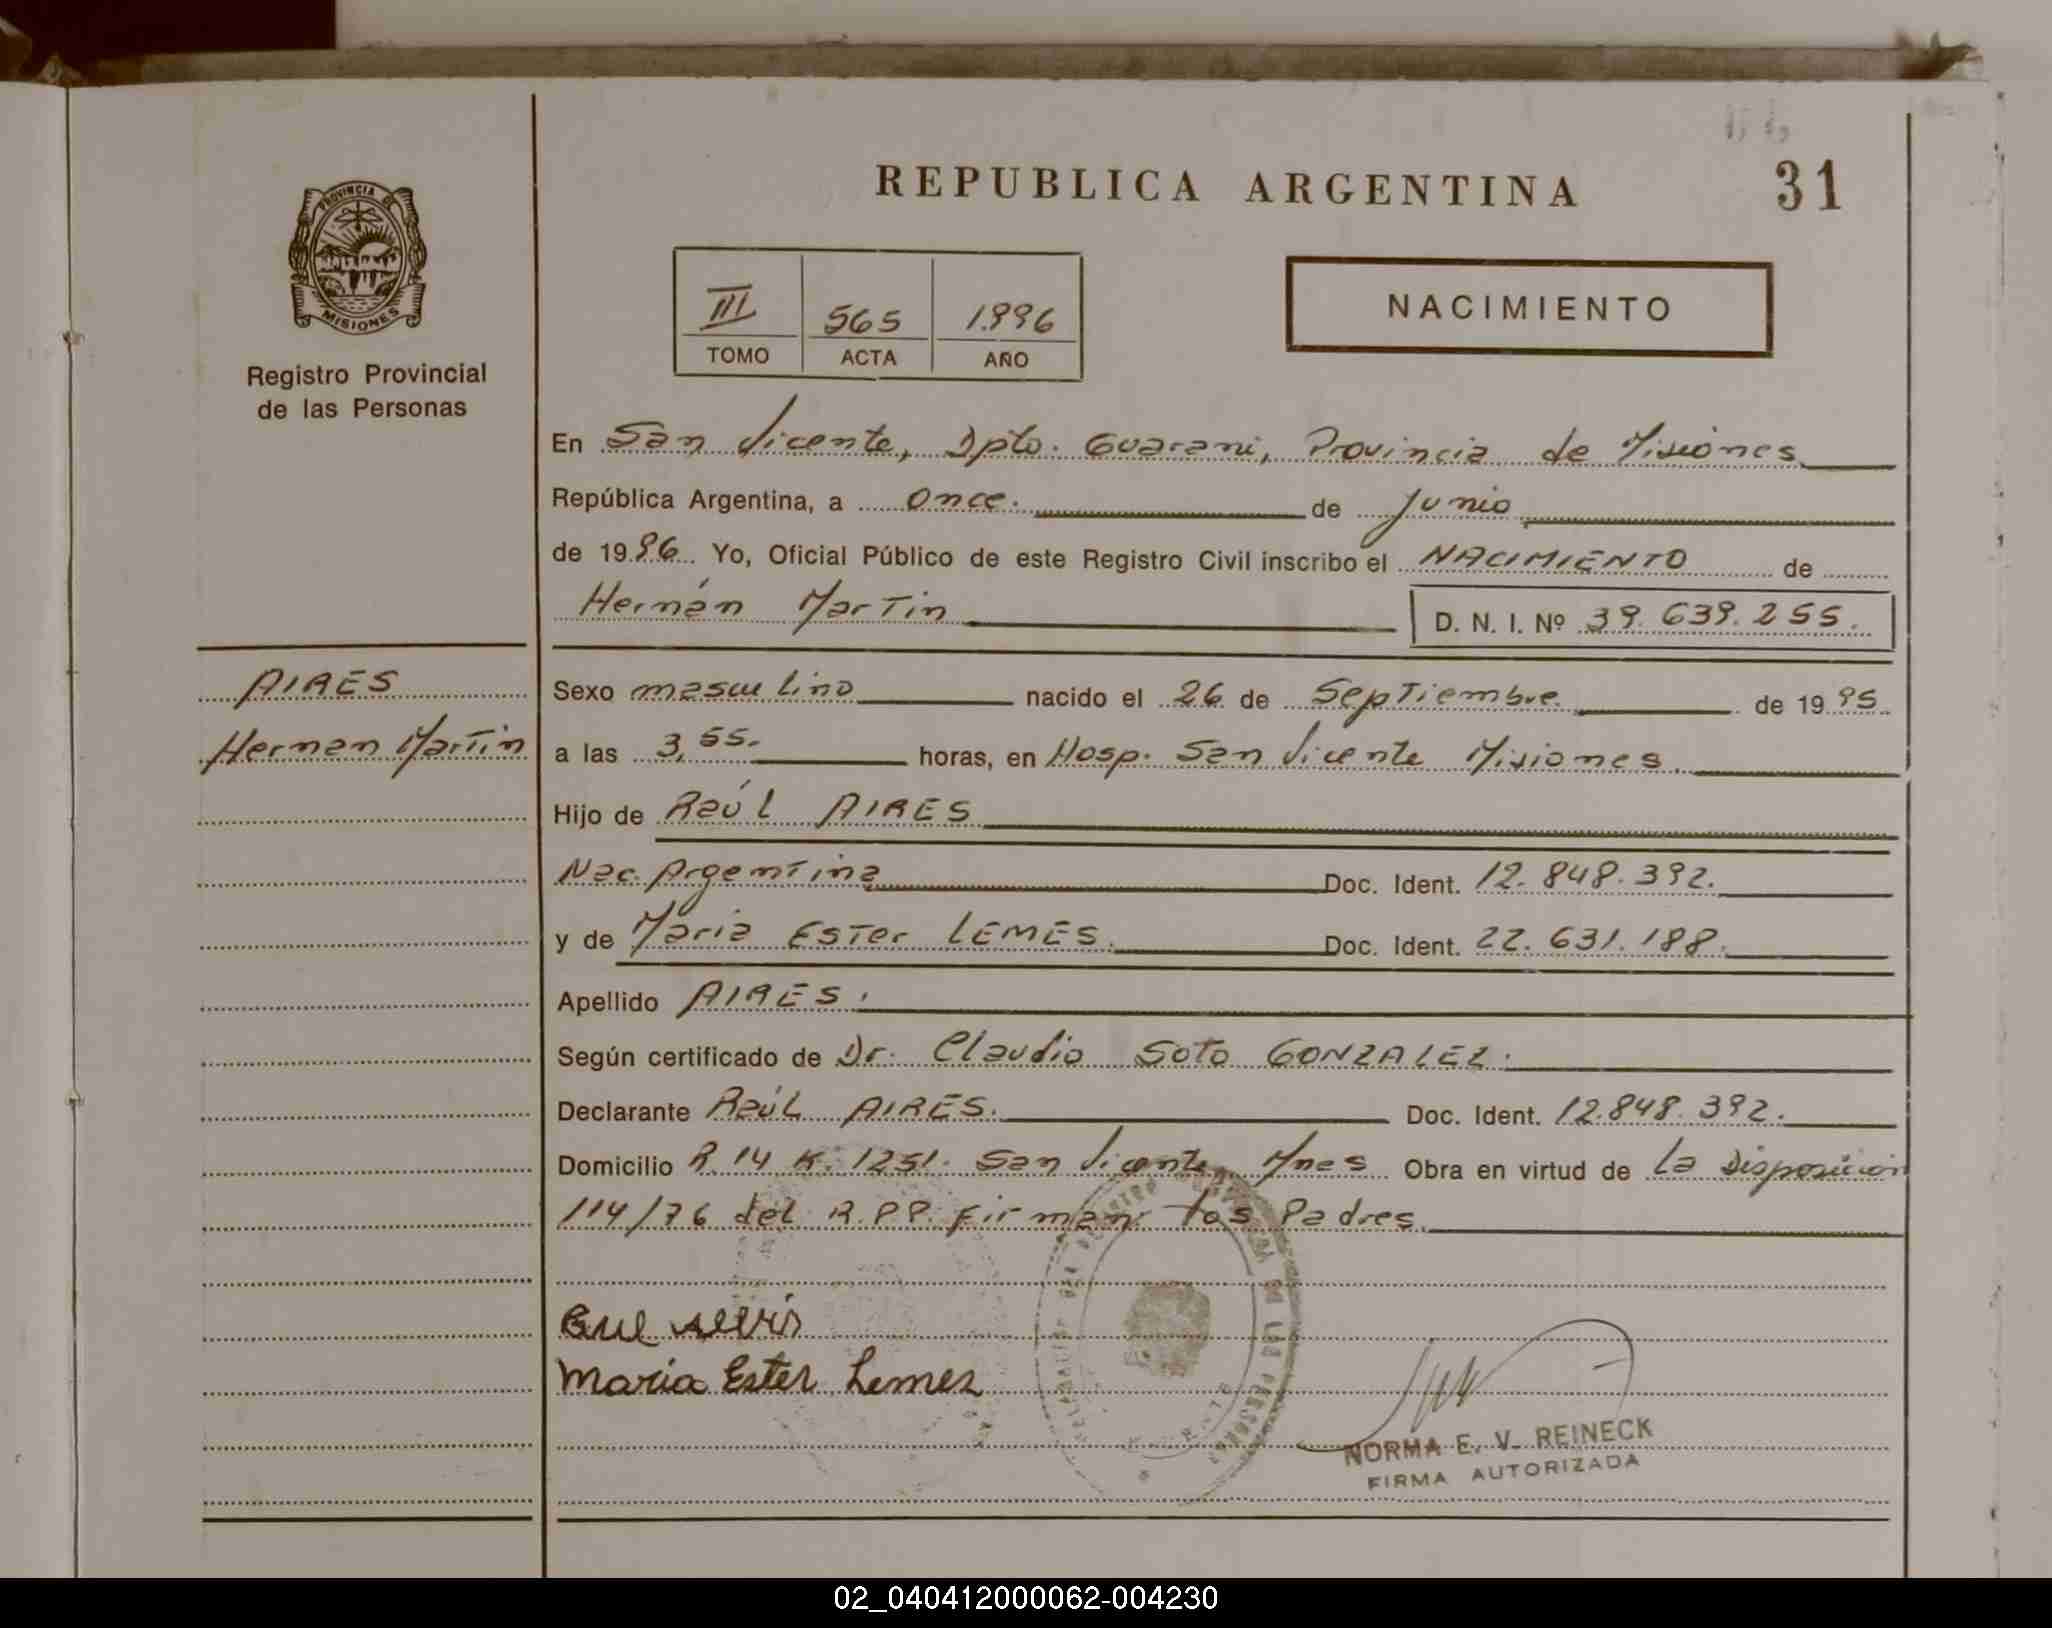 REPUBLICA ARGENTINA
31
PROVINCIA DE
MISIONES
Registro Provincial
de las Personas
III 565 1.996
TOMO ACTA AÑO
NACIMIENTO
En San Vicente, Dpto. Guarani, Provincia de Misiones
República Argentina, a once. de Junio
de 1996 Yo, Oficial Público de este Registro Civil inscribo el NACIMIENTO de
Hernán Martin D. N. I. Nº 39.639.255.
AIRES
Hernan Martin
Sexo masculino nacido el 26 de Septiembre. de 1995
a las 3,55. horas, en Hosp. San Vicente Misiones.
Hijo de Raúl AIRES
Nac. Argentina Doc. Ident. 12.848.392.
y de Maria Ester LEMES. Doc. Ident. 22.631.188.
Apellido AIRES.
Según certificado de Dr. Claudio Soto GONZALEZ.
Declarante Raúl AIRES. Doc. Ident. 12.848.392.
Domicilio R. 14 K. 1251. San Vicente Mnes Obra en virtud de La Disposición
114/76 del R.P.P. firman los Padres.
Maria Ester Lemes
NORMA E. V. REINECK
FIRMA AUTORIZADA
02_040412000062-004230